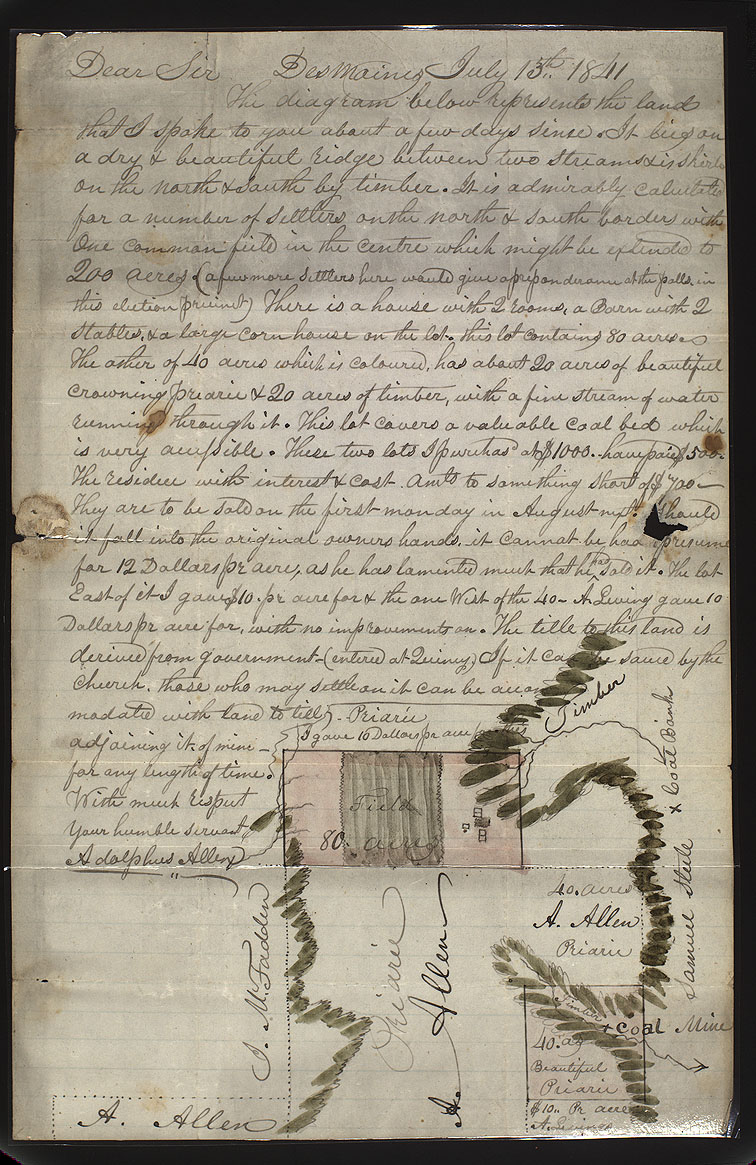 Dear Sir DesMoines July 13th. 1841
The diagram below represents the land
that I spoke to you about a few days sinse. It lies on
a dry & beautiful ridge between two streams & is skirt
on the north & south by timber. It is admirably calculated
for a number of settlers, on the north & south borders with
One common field in the centre which might be extended to
200 acres (a few more settlers here would give a preponderance at the polls in
this election precinct) There is a house with 2 rooms, a Barn with 2
Stables, & a large corn house on the lot. this lot contains 80 acres.
The other of 40 acres which is coloured, has about 20 acres of beautiful
crowning priarie & 20 acres of timber, with a fine stream of water
running through it. This lot covers a valuable coal bed which
is very accessible. These two lots I purchasd at $1000. have paid $500.
The residue with interest & cost amts to something short of $700
They are to be sold on the first monday in August nxt. Should
it fall into the original owners hands, it cannot be had I presume
for 12 Dollars pr acre, as he has lamented much that he has sold it. The lot
East of it I gave $10. pr acre for & the one West of the 40 A. Living gave 10
Dollars pr acre for, with no improvements on. The title to this land is
derived from government (entered at Quincy) If it can be saved by the
Church, those who may settle on it can be accom
modated with land to till
adjoining it, of mine
for any length of time.
With much respect
Your humble servant,
Adolphus Allen
Priarie
I gave 10 Dollars pr acre for this
Timber
Coal Bank
Samuel Steele
Field
80. acres
40. acres
A. Allen
Priarie
J. McFadden
Priarie
A. Allen
Timber
Coal Mine
40. as
Beautiful
Priarie
$10.. Pr acre
A. Living
A. Allen